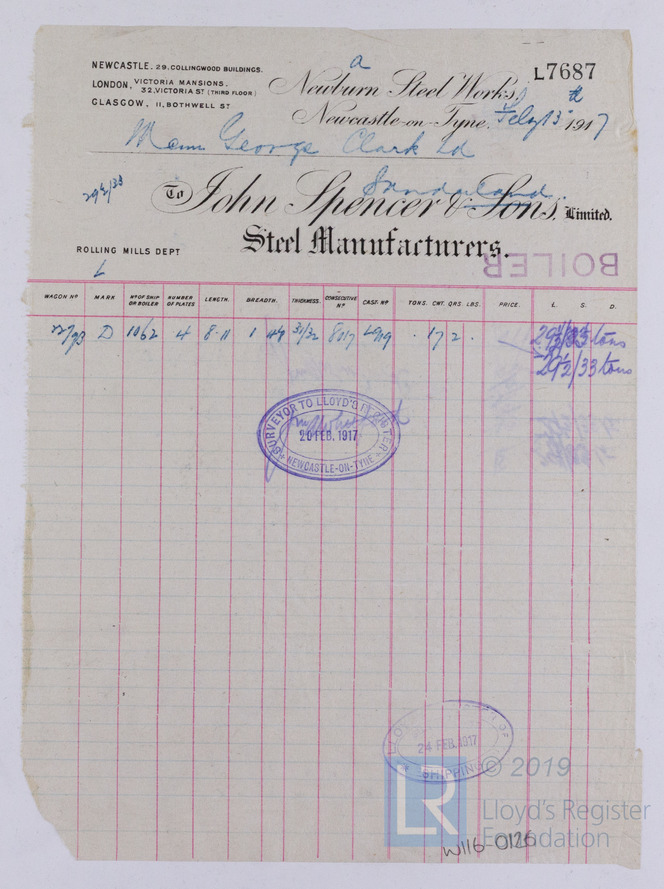 NEWCASTLE. 29. COLLINGWOOD BUILDINGS.
LONDON, VICTORIA MANSIONS.
32, VICTORIA ST (THIRD FLOOR)
GLASGOW, 11, BOTHWELL ST
a
L7687
Newburn Steel Works,
Newcastle-on-Tyne, Feby 13th 1917
Messrs George Clark Ld
Sunderland.
29½/33
To John Spencer & Sons, Limited.
Steel Manufacturers.
ROLLING MILLS DEPT
L
BOILER
WAGON No MARK No OF SHIP OR BOILER NUMBER OF PLATES LENGTH. BREADTH. THICKNESS. CONSECUTIVE No CAST. No TONS. CWT. QRS LBS. PRICE. £. S. D.
D 1062 4 8-11 1 31/32 8017 . 17 2 .
29½/33 tons
SURVEYOR TO LLOYD'S REGISTER
20 FEB. 1917
NEWCASTLE-ON-TYNE
24 FEB. 1917
SHIPPING
LR
© 2019
Lloyd's Register
Foundation
W116-0126